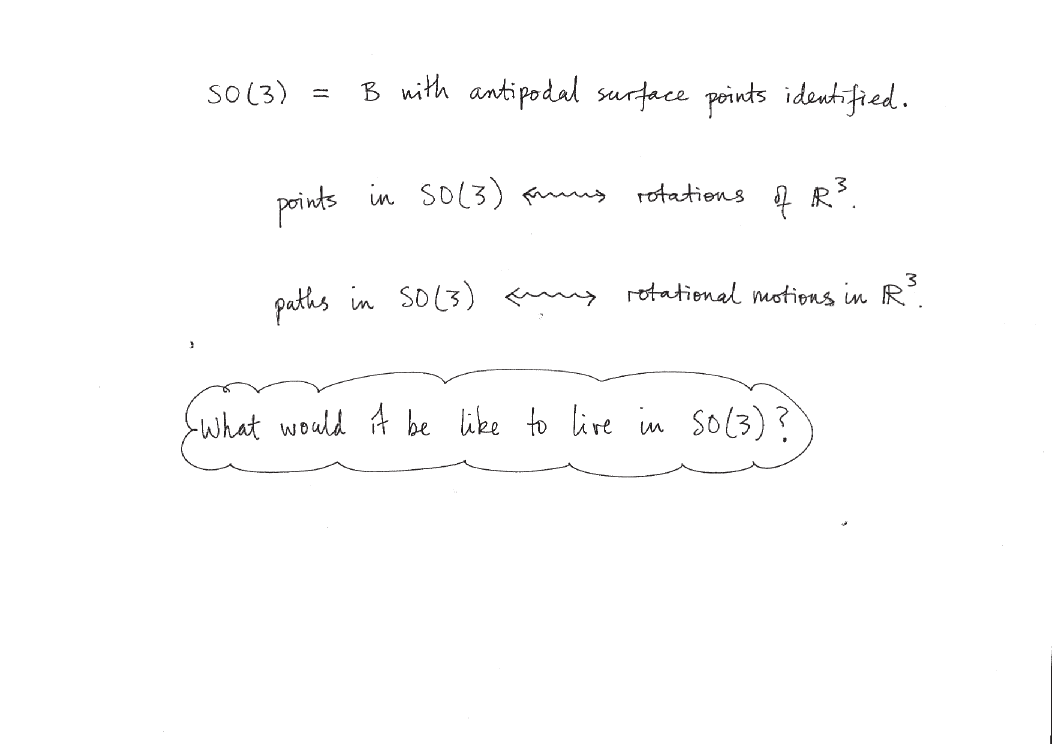 SO(3) = B with antipodal surface points identified.
points in SO(3) ⟷ rotations of ℝ³.
paths in SO(3) ⟷ rotational motions in ℝ³.
What would it be like to live in SO(3)?